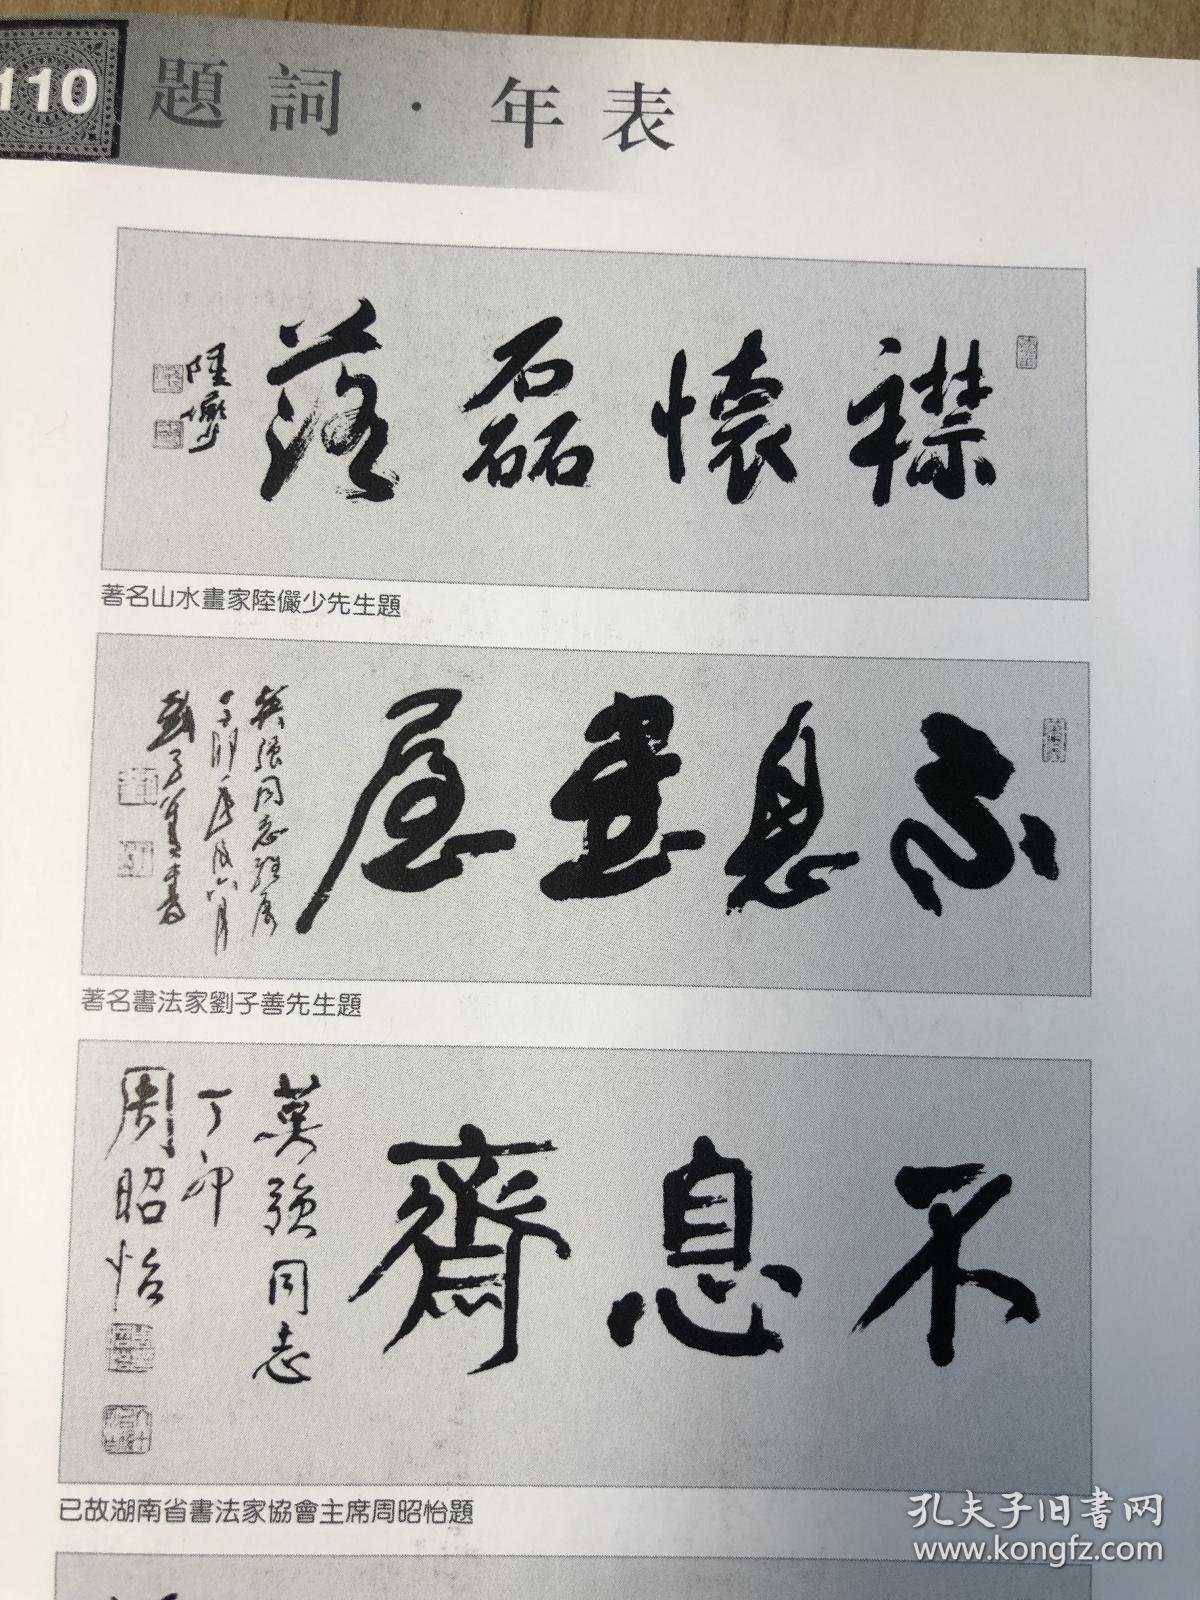 110
題詞·年表
襟懷磊落
陸儼少
著名山水畫家陸儼少先生題
不息畫屋
劉子善書
著名書法家劉子善先生題
不息齋
莫強同志
丁卯
周昭怡
已故湖南省書法家協會主席周昭怡題
孔夫子旧書网
www.kongfz.com